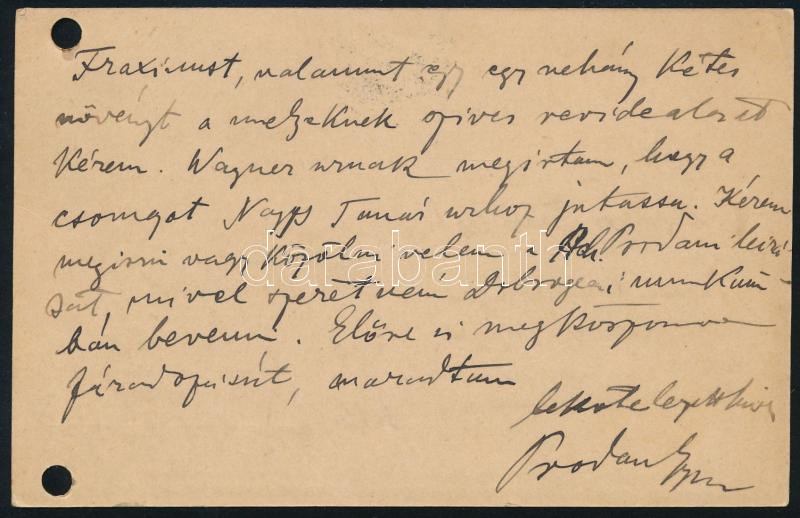 Fraxinust, valamint egy egy nehány kétes
növényt a melyeknek szives revidealását
kérem. Wagner urnak megirtam, hogy a
csomagot Nagys Tanár urhoz jutassa. Kérem
megirni vagy közölni velem a Rch Prodani leirá-
sát, mivel szeretném Dobrogeai munkám-
bán bevenni. Előre is megköszönve
fáradozását, maradtam
lekötelezett hive
Prodan Gyu
darabanth